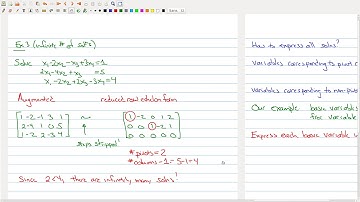 Ex 3 (infinite # of solns)
Solve x₁-2x₂-x₃+3x₄=1
2x₁-4x₂+x₃ =5
x₁-2x₂+2x₃-3x₄=4
Augmented
reduced row echelon form
1 -2 -1 3 1
2 -4 1 0 5
1 -2 2 -3 4
~
↑
steps skipped!
1 -2 0 1 2
0 0 1 -2 1
0 0 0 0 0
# pivots = 2
# columns - 1 = 5-1=4
Since 2<4, there are infinitely many solns!
How to express all solns?
Variables corresponding to pivot c
Variables corresponding to non pivot
Our example basic variables
free variable
Express each basic variable